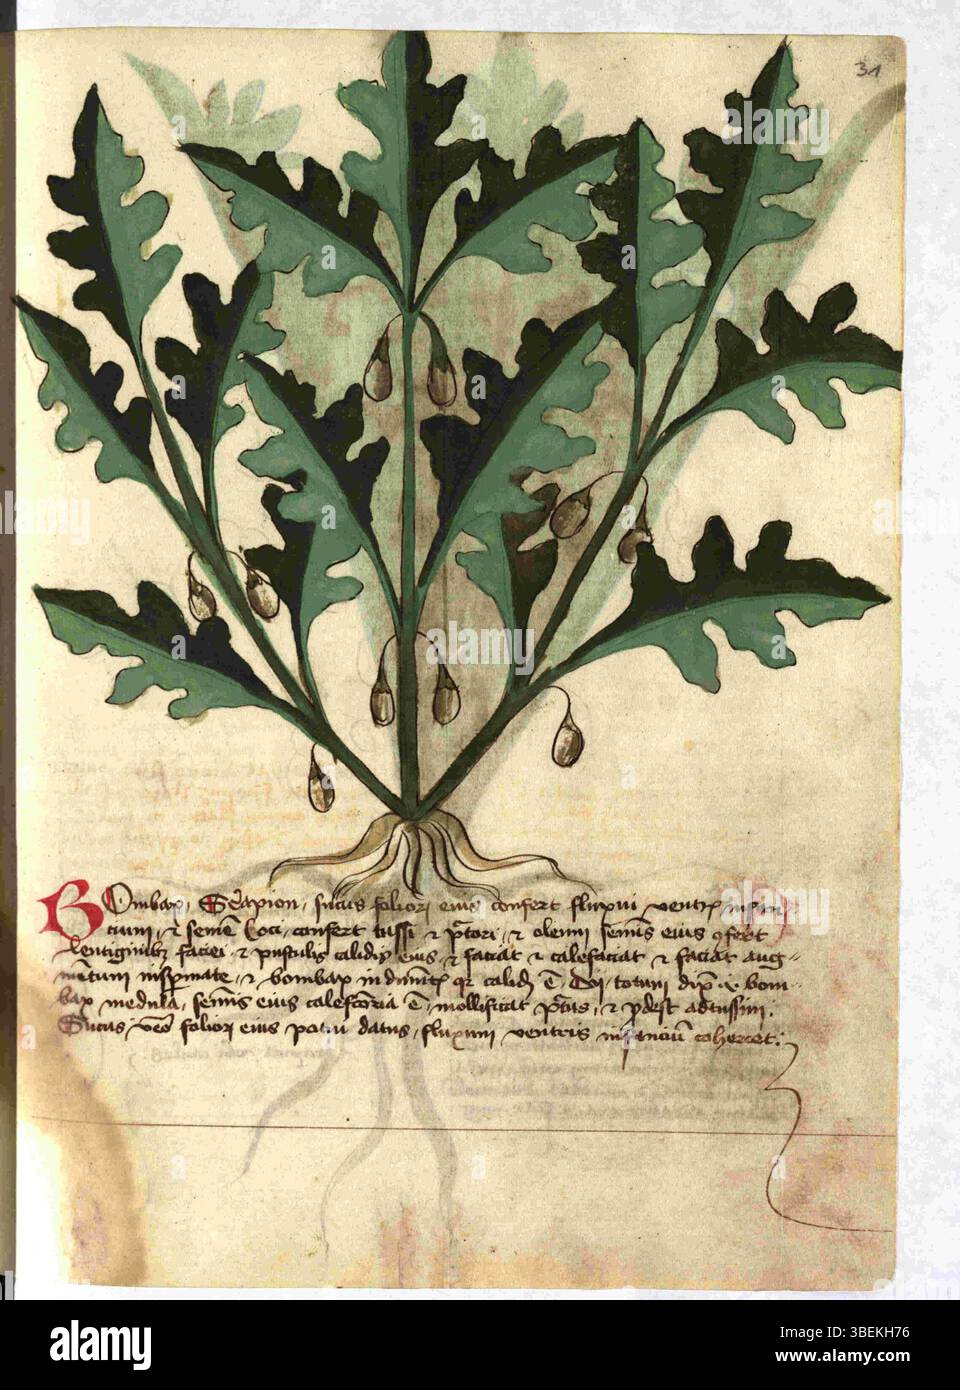 31
Bombax, Serapion, sucus folior eius confert fluxui ventr infan
cium, et semē loci confert tussi et pctori, et oleum semīs eius confert
Lentiginibus faciei et pustulis calidis eius, et faciat et calefaciat et faciat aug-
mētum in spmate, et bombax indumēt qr calid ē
bax medula, semīs eius calefactoria ē, mollificat pctus, et pdest ad tussim.
Sucus vero folior eius potui datus, fluxum ventris infanciū cohercet.
alamy
Image ID: 3BEKH76
www.alamy.com